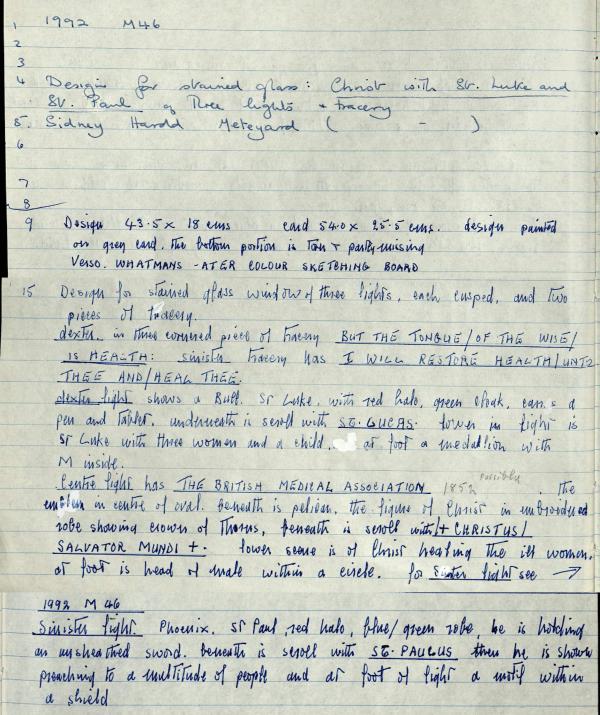 1 1992 M46
2
3
4 Design for stained glass: Christ with St. Luke and
St. Paul of Three lights + tracery
5. Sidney Harold Meteyard ( - )
6
7
8
9 Design 43.5 x 18 cms card 54.0 x 25.5 cms. design painted
on grey card. the bottom portion is torn & partly missing
Verso. WHATMANS -ATER COLOUR SKETCHING BOARD
15 Design for stained glass window of three lights, each cusped, and two
pieces of tracery.
dexter. in three cornered piece of tracery BUT THE TONGUE/OF THE WISE/
IS HEALTH: sinister tracery has I WILL RESTORE HEALTH/UNTO
THEE AND/HEAL THEE.
dexter light shows a Bull. St Luke, with red halo, green cloak, carries a
pen and tablet. underneath is scroll with ST. LUCAS. lower in light is
St Luke with three women and a child. at foot a medallion with
M inside.
Centre light has THE BRITISH MEDICAL ASSOCIATION 1852 possibly the
emblem in centre of oval. beneath is pelican, the figure of Christ in embroidered
robe showing crown of Thorns, beneath is scroll with/+ CHRISTUS/
SALVATOR MUNDI +. lower scene is of Christ healing the ill women.
at foot is head of male within a circle. for Sinister light see →
1992 M 46
Sinister light. Phoenix. St Paul, red halo, blue/green robe, he is holding
an unsheathed sword. beneath is scroll with ST. PAULUS then he is shown
preaching to a multitude of people and at foot of light a motif within
a shield